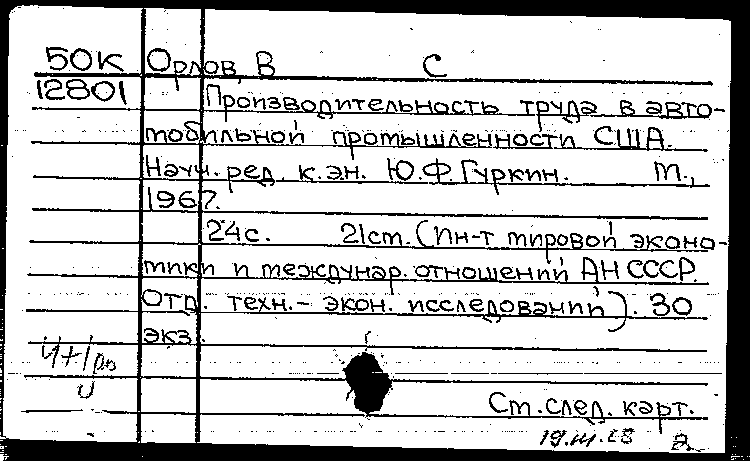 50К Орлов, В С
12801 Производительность труда в авто-
мобильной промышленности США.
Науч. ред. к.эн. Ю.Ф.Гуркин. М.,
1967.
24с. 21см. (Ин-т мировой эконо-
мики и междунар. отношений АН СССР.
Отд. техн.-экон. исследований). 30
экз.
См. след. карт.